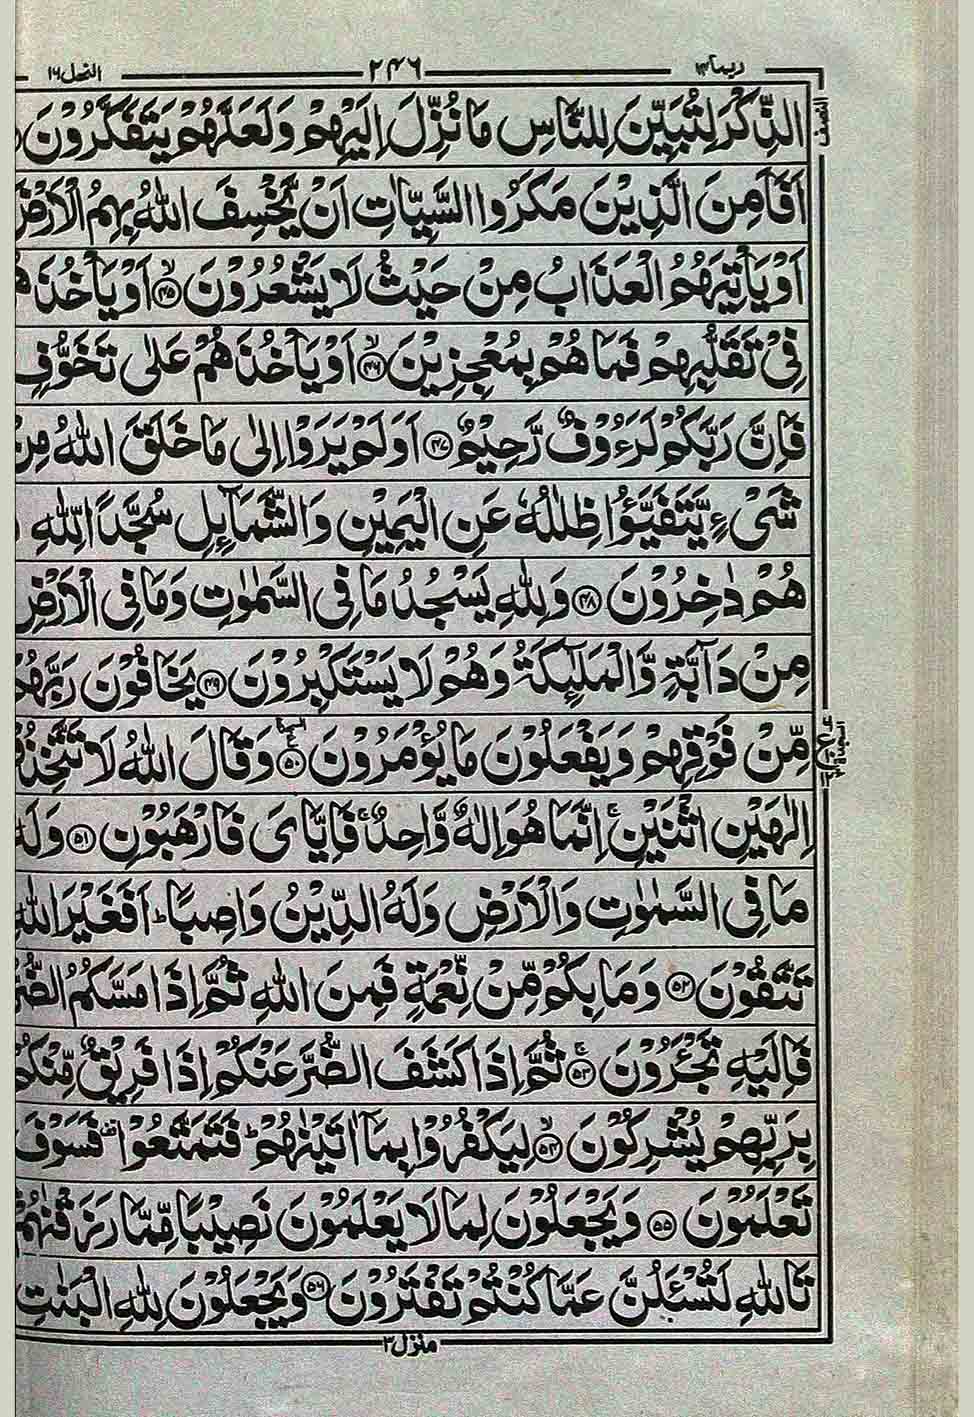 ربما ۱۴ ۲۴۶ النحل ۱۶
النصف
الذِّكْرَ لِتُبَيِّنَ لِلنَّاسِ مَا نُزِّلَ اِلَيْهِمْ وَلَعَلَّهُمْ يَتَفَكَّرُوْنَ
اَفَاَمِنَ الَّذِيْنَ مَكَرُوا السَّيِّاٰتِ اَنْ يَّخْسِفَ اللّٰهُ بِهِمُ الْاَرْضَ
اَوْ يَاْتِيَهُمُ الْعَذَابُ مِنْ حَيْثُ لَا يَشْعُرُوْنَ ﴿۴۵﴾ اَوْ يَاْخُذَ
فِيْ تَقَلُّبِهِمْ فَمَا هُمْ بِمُعْجِزِيْنَ ﴿۴۶﴾ اَوْ يَاْخُذَهُمْ عَلٰى تَخَوُّفٍ
فَاِنَّ رَبَّكُمْ لَرَءُوْفٌ رَّحِيْمٌ ﴿۴۷﴾ اَوَلَمْ يَرَوْا اِلٰى مَا خَلَقَ اللّٰهُ مِنْ
شَيْءٍ يَّتَفَيَّؤُا ظِلٰلُهٗ عَنِ الْيَمِيْنِ وَالشَّمَآئِلِ سُجَّدًا لِّلّٰهِ
هُمْ دٰخِرُوْنَ ﴿۴۸﴾ وَلِلّٰهِ يَسْجُدُ مَا فِي السَّمٰوٰتِ وَمَا فِي الْاَرْضِ
مِنْ دَآبَّةٍ وَّالْمَلٰٓئِكَةُ وَهُمْ لَا يَسْتَكْبِرُوْنَ ﴿۴۹﴾ يَخَافُوْنَ رَبَّهُمْ
مِّنْ فَوْقِهِمْ وَيَفْعَلُوْنَ مَا يُؤْمَرُوْنَ ﴿۵۰﴾ وَقَالَ اللّٰهُ لَا تَتَّخِذُ
اِلٰهَيْنِ اثْنَيْنِ ۚ اِنَّمَا هُوَ اِلٰهٌ وَّاحِدٌ ۚ فَاِيَّايَ فَارْهَبُوْنِ ﴿۵۱﴾ وَلَهٗ
مَا فِي السَّمٰوٰتِ وَالْاَرْضِ وَلَهُ الدِّيْنُ وَاصِبًا ؕ اَفَغَيْرَ اللّٰهِ
تَتَّقُوْنَ ﴿۵۲﴾ وَمَا بِكُمْ مِّنْ نِّعْمَةٍ فَمِنَ اللّٰهِ ثُمَّ اِذَا مَسَّكُمُ الضُّرُّ
فَاِلَيْهِ تَجْـَٔرُوْنَ ﴿۵۳﴾ ۚ ثُمَّ اِذَا كَشَفَ الضُّرَّ عَنْكُمْ اِذَا فَرِيْقٌ مِّنْكُمْ
بِرَبِّهِمْ يُشْرِكُوْنَ ﴿۵۴﴾ لِيَكْفُرُوْا بِمَآ اٰتَيْنٰهُمْ ؕ فَتَمَتَّعُوْا ۫ فَسَوْفَ
تَعْلَمُوْنَ ﴿۵۵﴾ وَيَجْعَلُوْنَ لِمَا لَا يَعْلَمُوْنَ نَصِيْبًا مِّمَّا رَزَقْنٰهُمْ
تَاللّٰهِ لَتُسْـَٔلُنَّ عَمَّا كُنْتُمْ تَفْتَرُوْنَ ﴿۵۶﴾ وَيَجْعَلُوْنَ لِلّٰهِ الْبَنٰتِ
منزل ۳